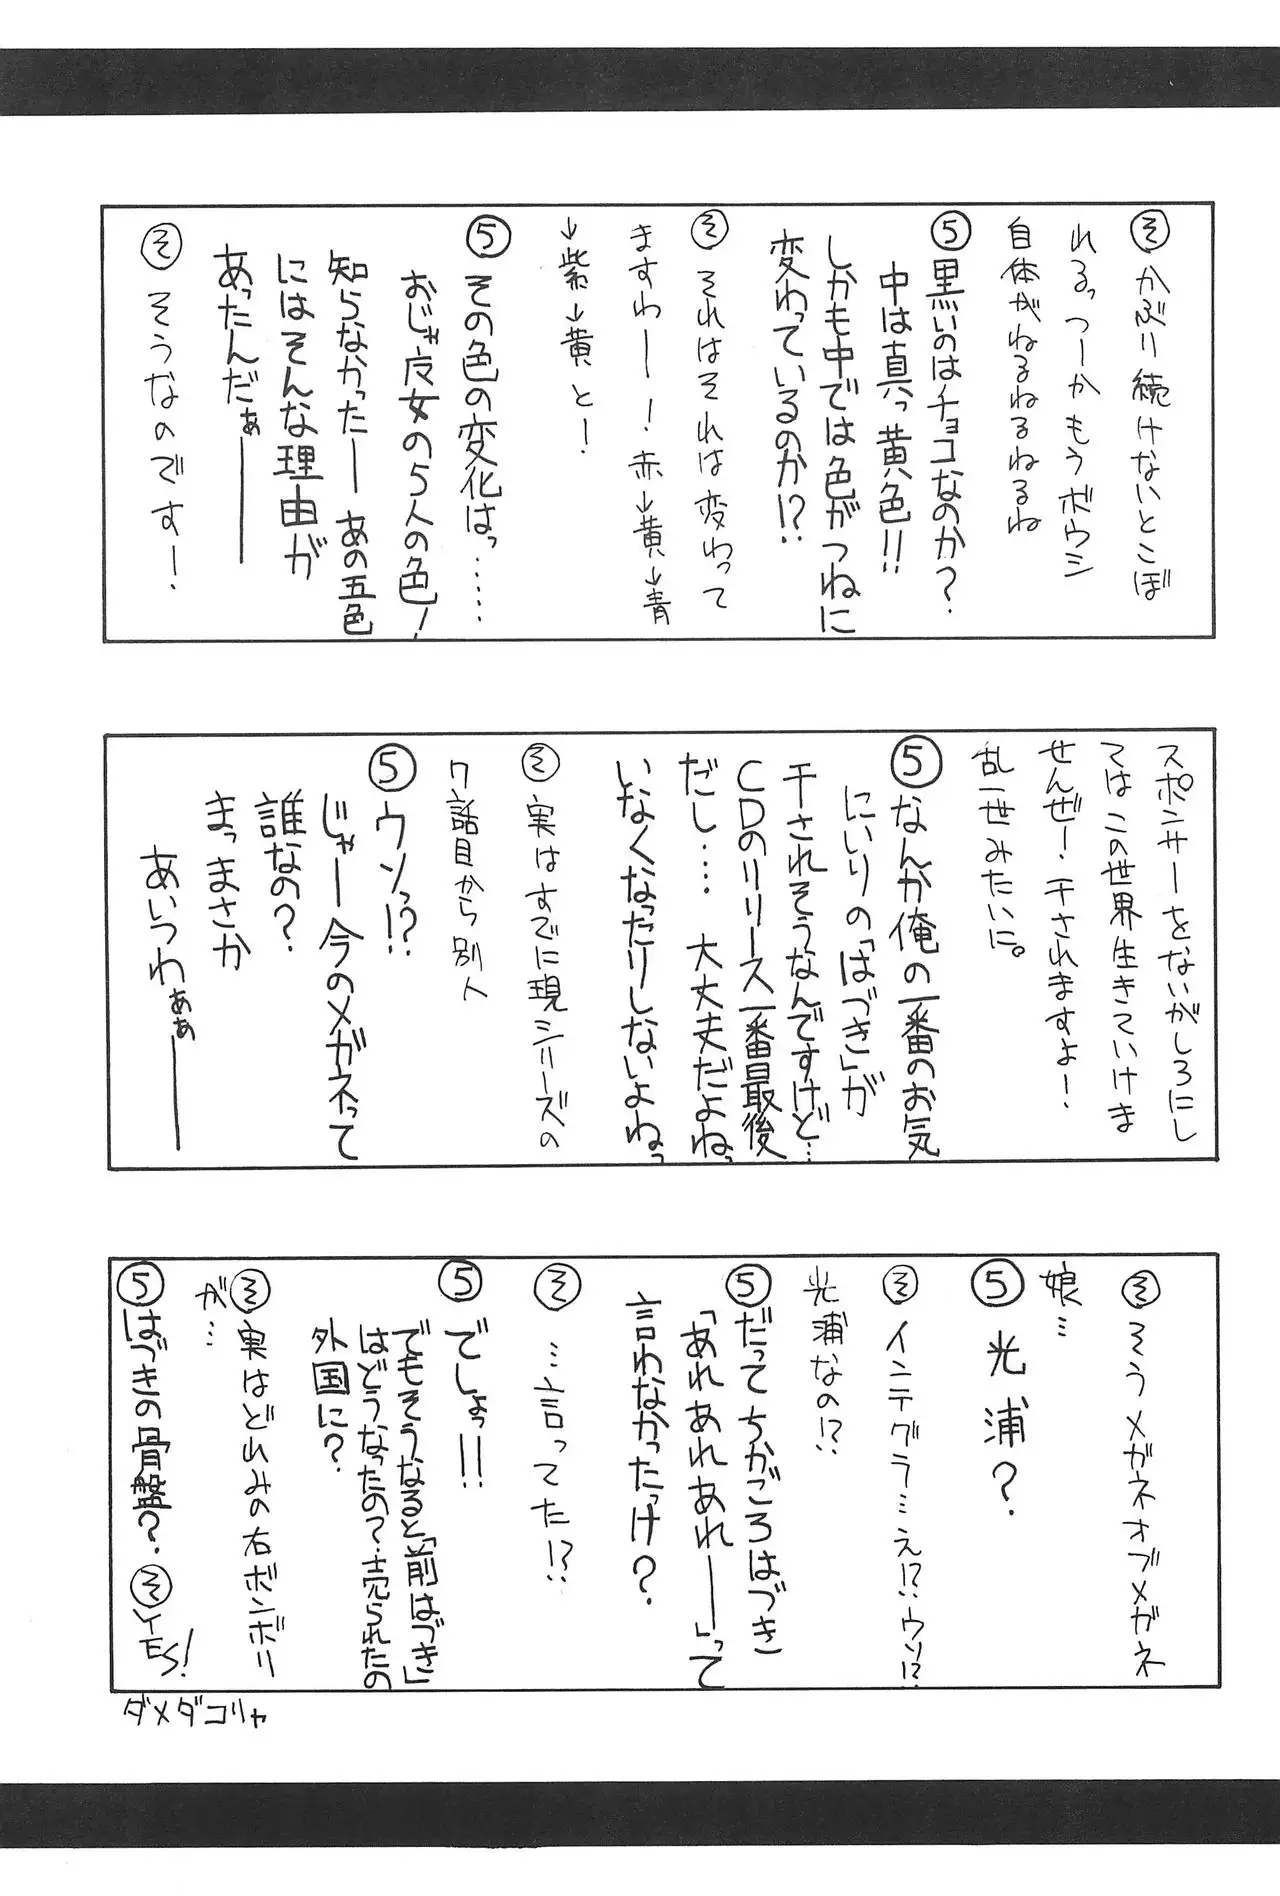 ㋞かぶり続けないとこぼ
れるっつーかもうボウシ
自体がねるねるねるね
⑤黒いのはチョコなのか?
中は真っ黄色!!
しかも中では色がつねに
変わっているのか!?
㋞それはそれは変わって
ますわー!赤→黄→青
→紫→黄と!
⑤その色の変化はっ……
おじゃ魔女の5人の色!
知らなかったーあの五色
にはそんな理由が
あったんだぁーー
㋞そうなのです!
スポンサーをないがしろにし
てはこの世界生きていけま
せんぜー・干されますよ!
乱一世みたいに。
⑤なんか俺の一番のお気
にいりの「はづき」が
干されそうなんですけど…
CDのリリース一番最後
だし…大丈夫だよねっ
いなくなったりしないよねっ
㋞実はすでに現シリーズの
7話目から別人
⑤ウソっ!?
じゃー今のメガネって
誰なの?
まっまさか
あいつわぁぁーー
㋞そうメガネオブメガネ
娘…
⑤光浦?
㋞インテグラ…え!?ウソ!?
光浦なの!?
⑤だってちかごろはづき
「あれあれあれあれーー」って
言わなかったっけ?
㋞…言ってた!?
⑤でしょっ!!
でもそうなると「前はづき」
はどうなったの?売られたの
外国に?
㋞実はどれみの右ボンボリ
が…
⑤はづきの骨盤?㋞YES!
ダメダコリャ